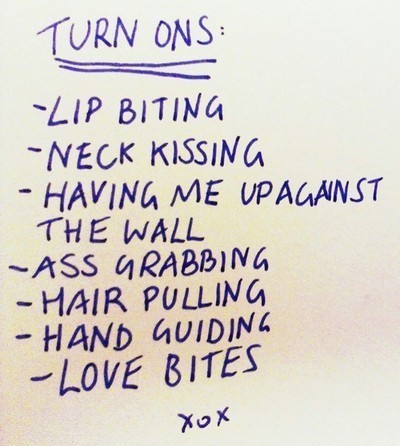 TURN ONS:
-LIP BITING
-NECK KISSING
- HAVING ME UP AGAINST
THE WALL
-ASS GRABBING
-HAIR PULLING
- HAND GUIDING
-LOVE BITES
xox